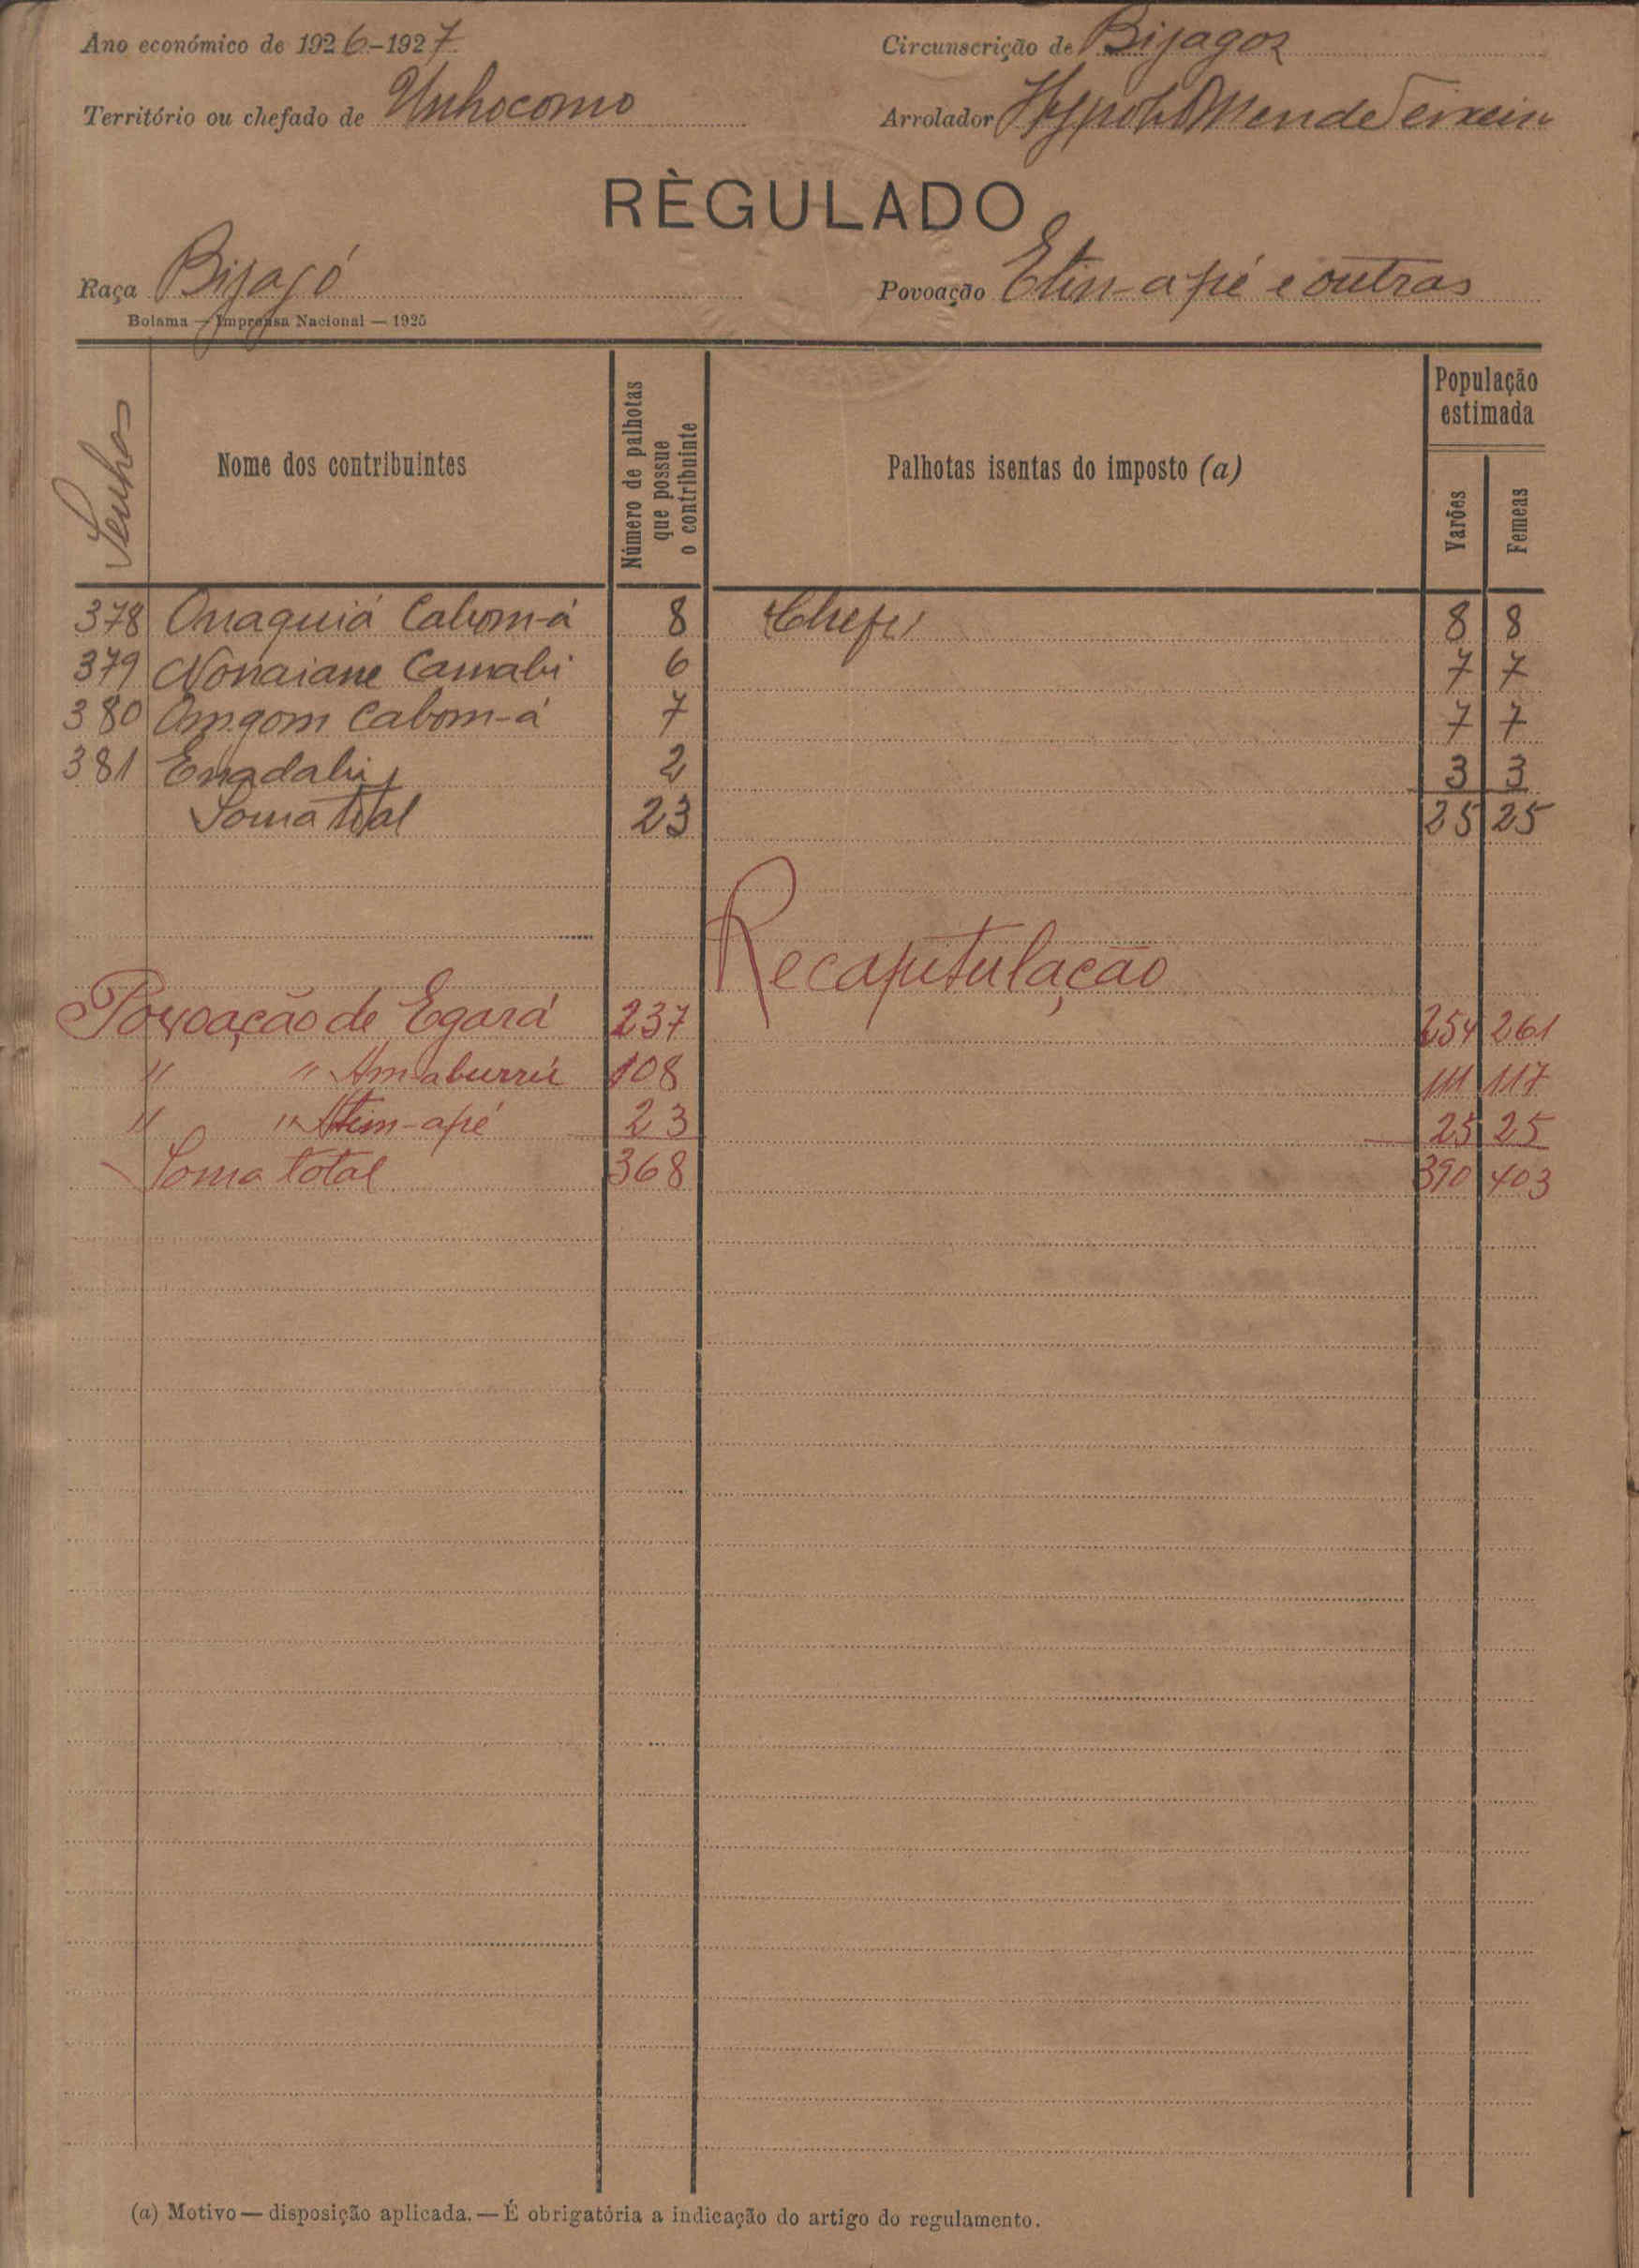 Ano económico de 1926-1927 Circunscrição de Bijagoz
Território ou chefado de Unhocomo Arrolador Mende Teixeira
RÈGULADO
Raça Bijagó Povoação Etim-apé e outras
Bolama — Imprensa Nacional — 1925
Senhas
Nome dos contribuintes
Número de palhotas que possue o contribuinte
Palhotas isentas do imposto (a)
População estimada
Varões
Femeas
378 Onaquiá Cabom-á 8 Chefe 8 8
379 Nonaiane Camabi 6 7 7
380 Omgom Cabom-á 7 7 7
381 Enadabi 2 3 3
Soma total 23 25 25
Recapitulação
Povoação de Egará 237 254 261
" " Am-aburrú 108 111 117
" " Etim-apé 23 25 25
Soma total 368 390 403
(a) Motivo — disposição aplicada. — É obrigatória a indicação do artigo do regulamento.